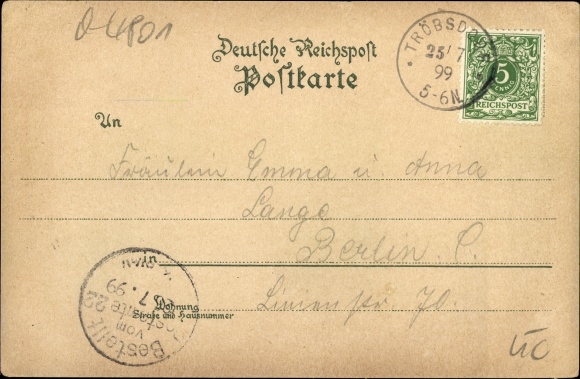 O-4801
Deutsche Reichspost
Postkarte
TRÖBSD
25/7
99
5-6N
5
REICHSPOST
An
Fräulein Emma u. Anna
Lange
in Berlin C.
Wohnung
Straße und Hausnummer
Linienstr.
Bestellt
vom
Postamte 22
7.99